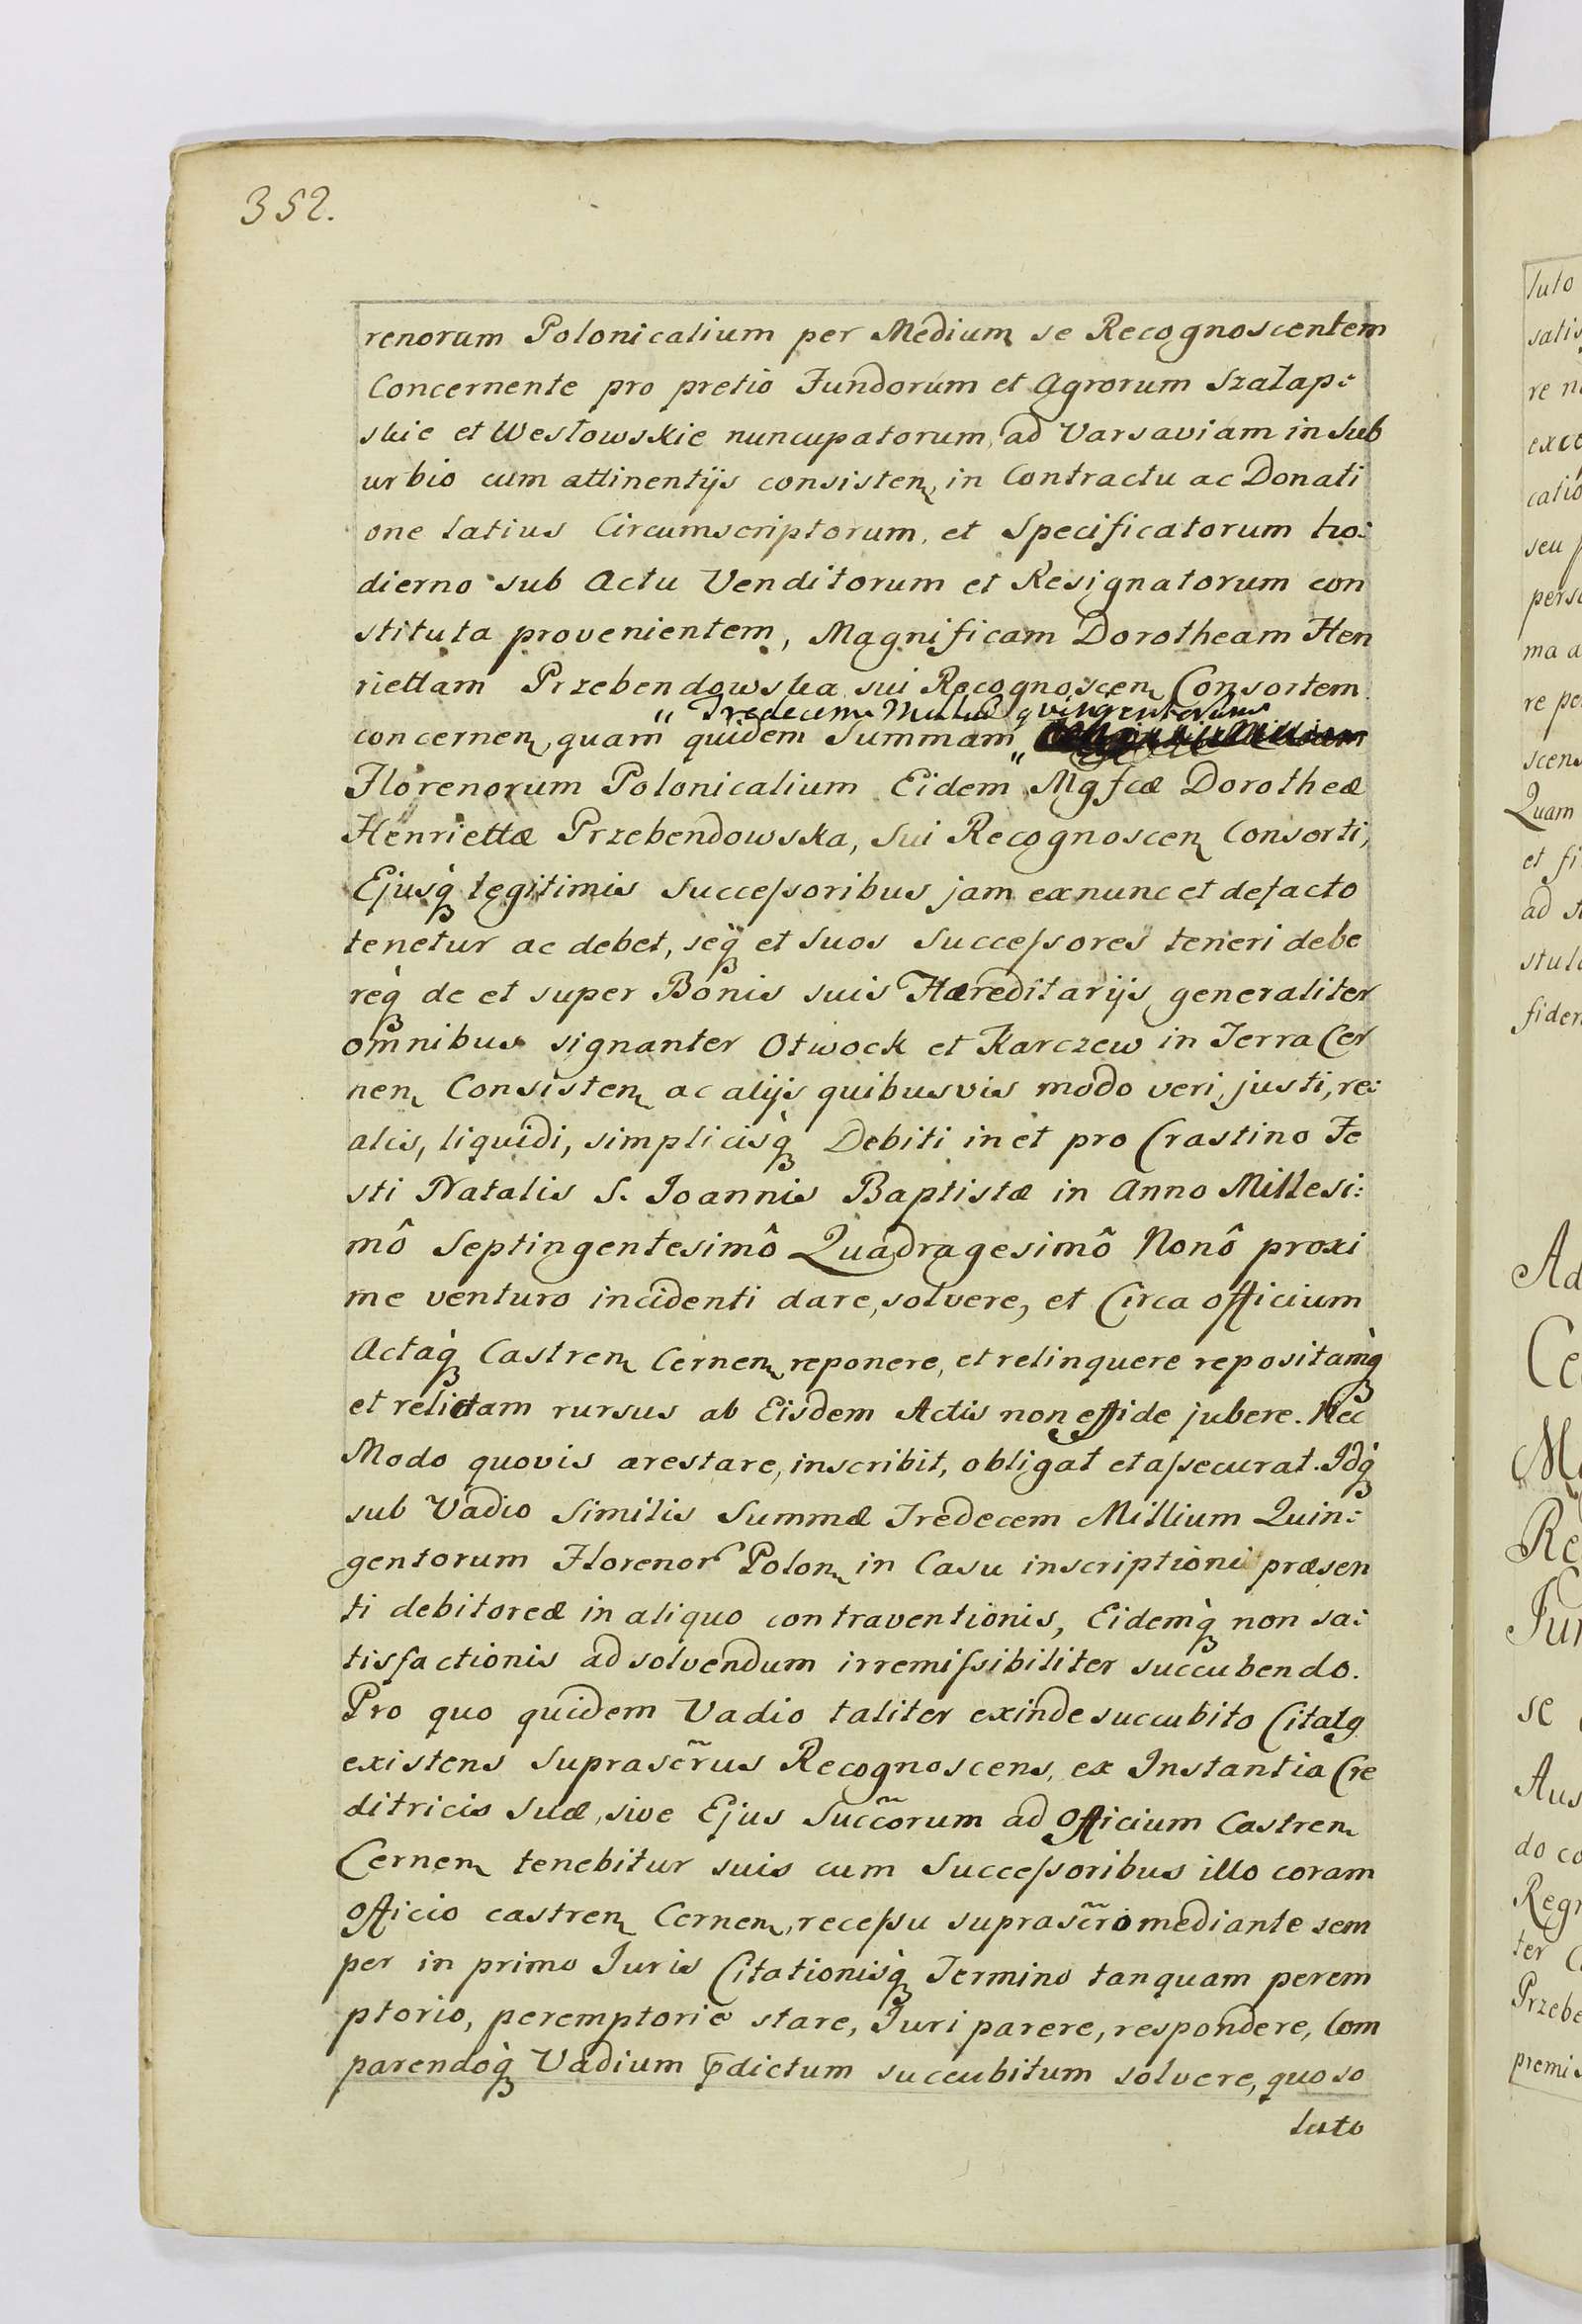 352.
renorum Polonicalium per Medium se Recognoscentem
Concernente pro pretio Fundorum et Agrorum Szałap:
skie et Westowskie nuncupatorum, ad Varsaviam in Sub
urbio cum attinentijs consisten, in Contractu ac Donati
one latius Circumscriptorum, et Specificatorum ho:
dierno sub Actu Venditorum et Resignatorum con
stituta provenientem, Magnificam Dorotheam Hen
riettam Przebendowska sui Recognoscen Consortem
" Tredecem Millium quingentorum
concernen, quam quidem Summam "
Florenorum Polonicalium Eidem Mgfcæ Dorotheæ
Henriettæ Przebendowska, sui Recognoscen Consorti,
Ejusq̀ legitimis Succeſsoribus jam ex nunc et de facto
tenetur ac debet, seq̀ et Suos Succeſsores teneri debe
req̀ de et super Bonis suis Hæreditarijs generaliter
omnibus signanter Otwock et Karczew in Terra Cer
nen Consisten ac alijs quibusvis modo veri, justi, re:
alis, liquidi, simplicisq̀ Debiti in et pro Crastino Fe
sti Natalis S. Joannis Baptistæ in Anno Millesi:
mô Septingentesimô Quadragesimô Nonô proxi
me venturo incidenti dare, solvere, et Circa officium
Actaq̀ Castren Cernen reponere, et relinquere repositamq̀
et relictam rursus ab Eisdem Actis non effide jubere. Nec
Modo quovis arestare, inscribit, obligat et aſsecurat. Idq̀
sub Vadio Similis Summæ Tredecem Millium Quin:
gentorum Florenor Polon in Casu inscriptioni præsen
ti debitoreæ in aliquo contraventionis, Eidemq̀ non sa:
tisfactionis ad solvendum irremiſsibiliter succubendo.
Pro quo quidem Vadio taliter exinde succubito Citatg
existens Suprascr̃us Recognoscens, ex Instantia Cre
ditricis Suæ, sive Ejus Succ̃orum ad Officium Castren
Cernen tenebitur suis cum Succeſsoribus illo coram
Officio castren Cernen, receſsu suprascr̃o mediante sem
per in primo Juris Citationisq̀ Termino tanquam perem
ptorio, peremptorie stare, Juri parere, respondere, Com
parendoq̀ Vadium p̄dictum succubitum solvere, quo so
luto
luto
satis
re n
exce
catio
seu
perso
ma a
re pe
scens
Quam
et fi
ad
stul
fiden
Ad
Ce
Re
Fun
se
Aus
do co
Regn
ter
Przebe
premis